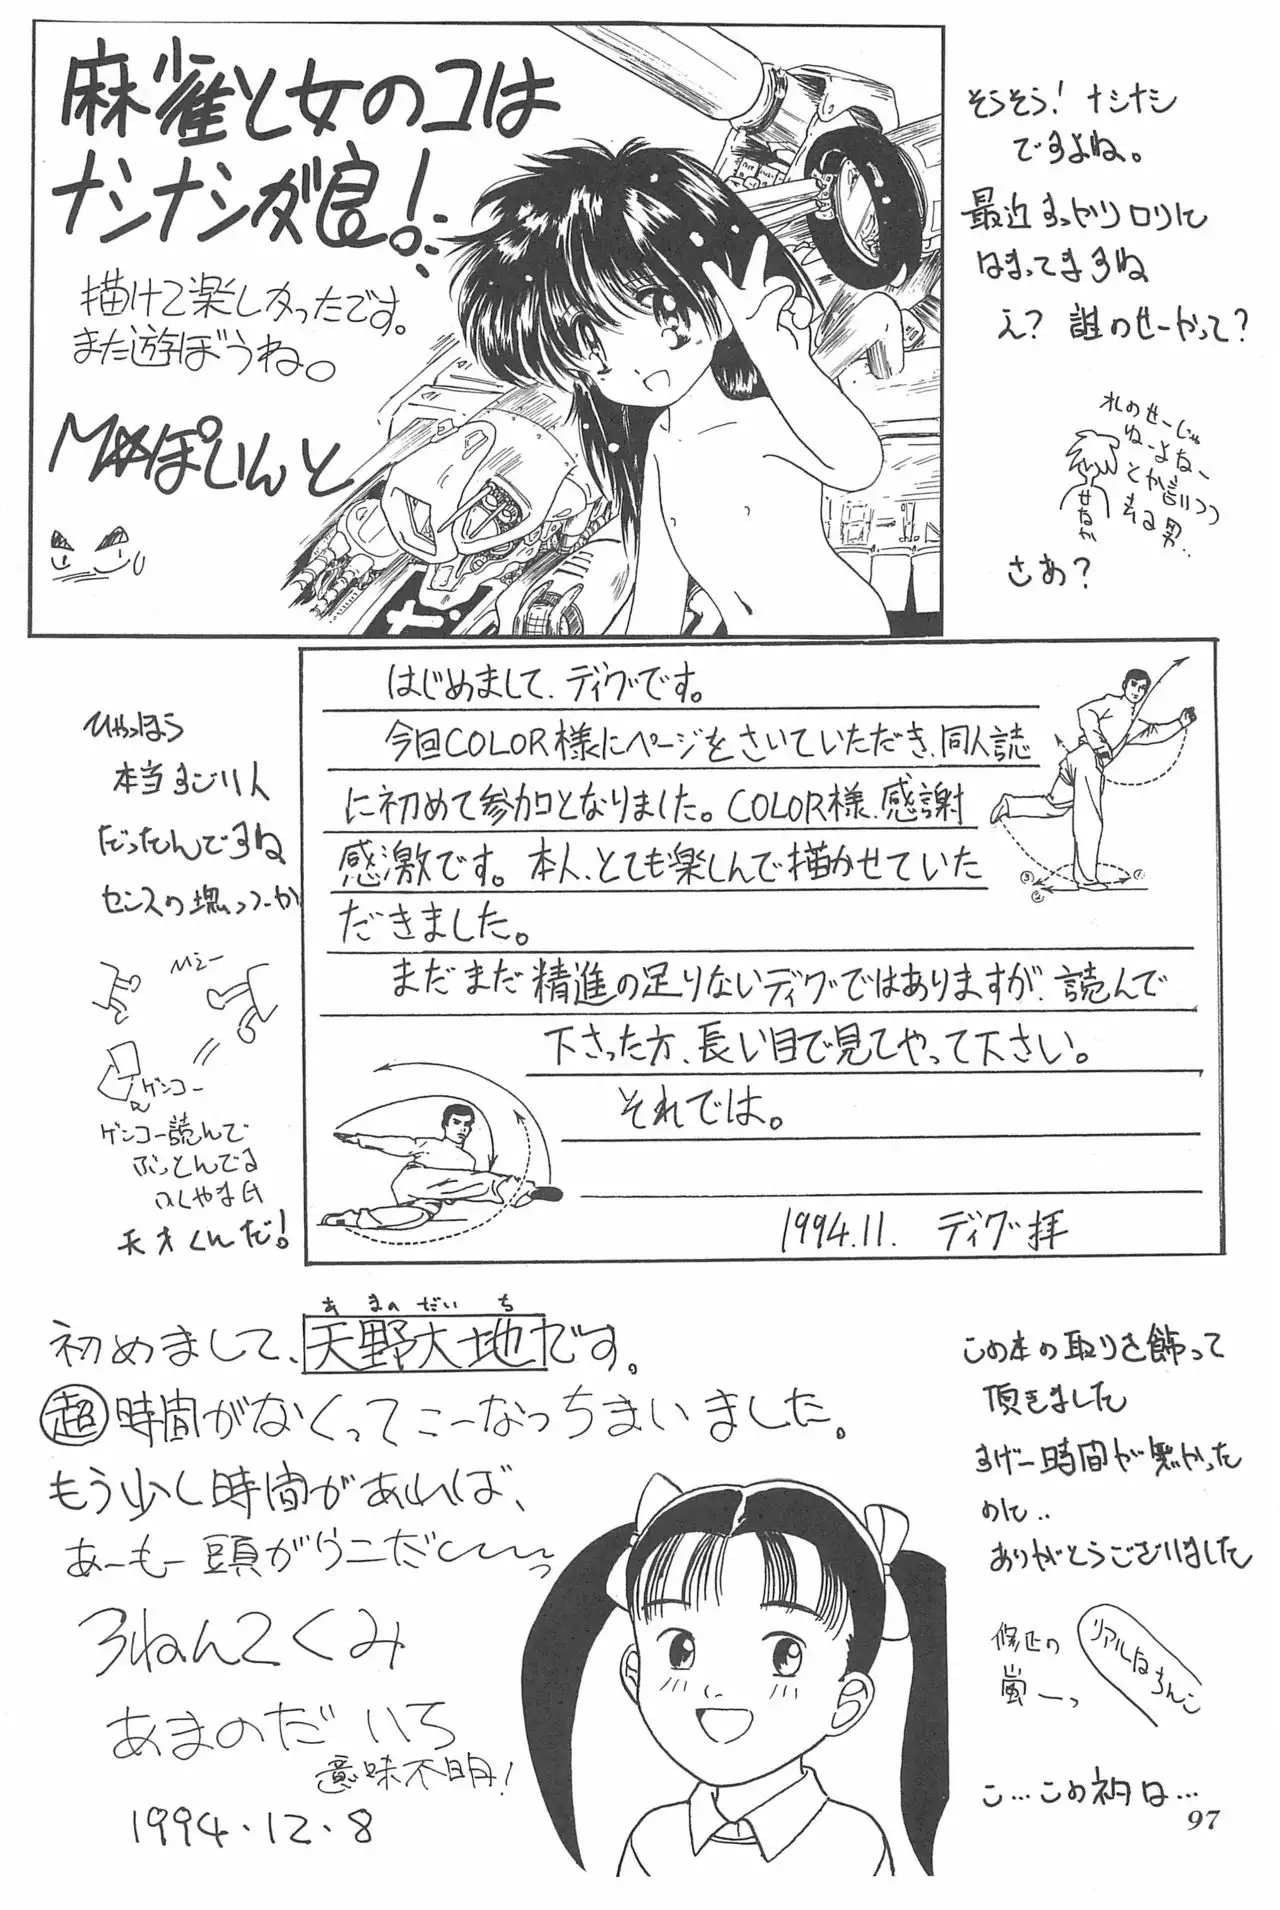 麻雀と女のコは
ナシナシが良!
描けて楽しかったです。
また遊ぼうね。
そうそう! ナシナシ
ですよね。
最近すっかりロリに
はまってますね
え? 誰のせーかって?
れのせーじゃ
ねーよなー
とか言いつつ
去る男..
せなか
さあ?
はじめまして、ディグです。
今回COLOR様にページをさいていただき、同人誌
に初めて参加となりました。COLOR様、感謝
感激です。本人、とても楽しんで描かせていた
だきました。
まだまだ精進の足りないディグではありますが、読んで
下さった方、長い目で見てやって下さい。
それでは。
1994.11. ディグ拝
③
②
①
ひゃっほう
本当すごい人
だったんですね
センスの塊っつーか
ゲンコー
ゲンコー読んで
ぶっとんでる
天才くんだ!
あまのだいち
初めまして、天野大地です。
超時間がなくってこーなっちまいました。
もう少し時間があれば、
あーもー頭がウニだ〜〜っ
あまのだいち
意味不明!
1994.12.8
この本の取りを飾って
頂きました
すげー時間が無かった
のに..
ありがとうございました
修正の
嵐ーっ
こ…この初は…
97